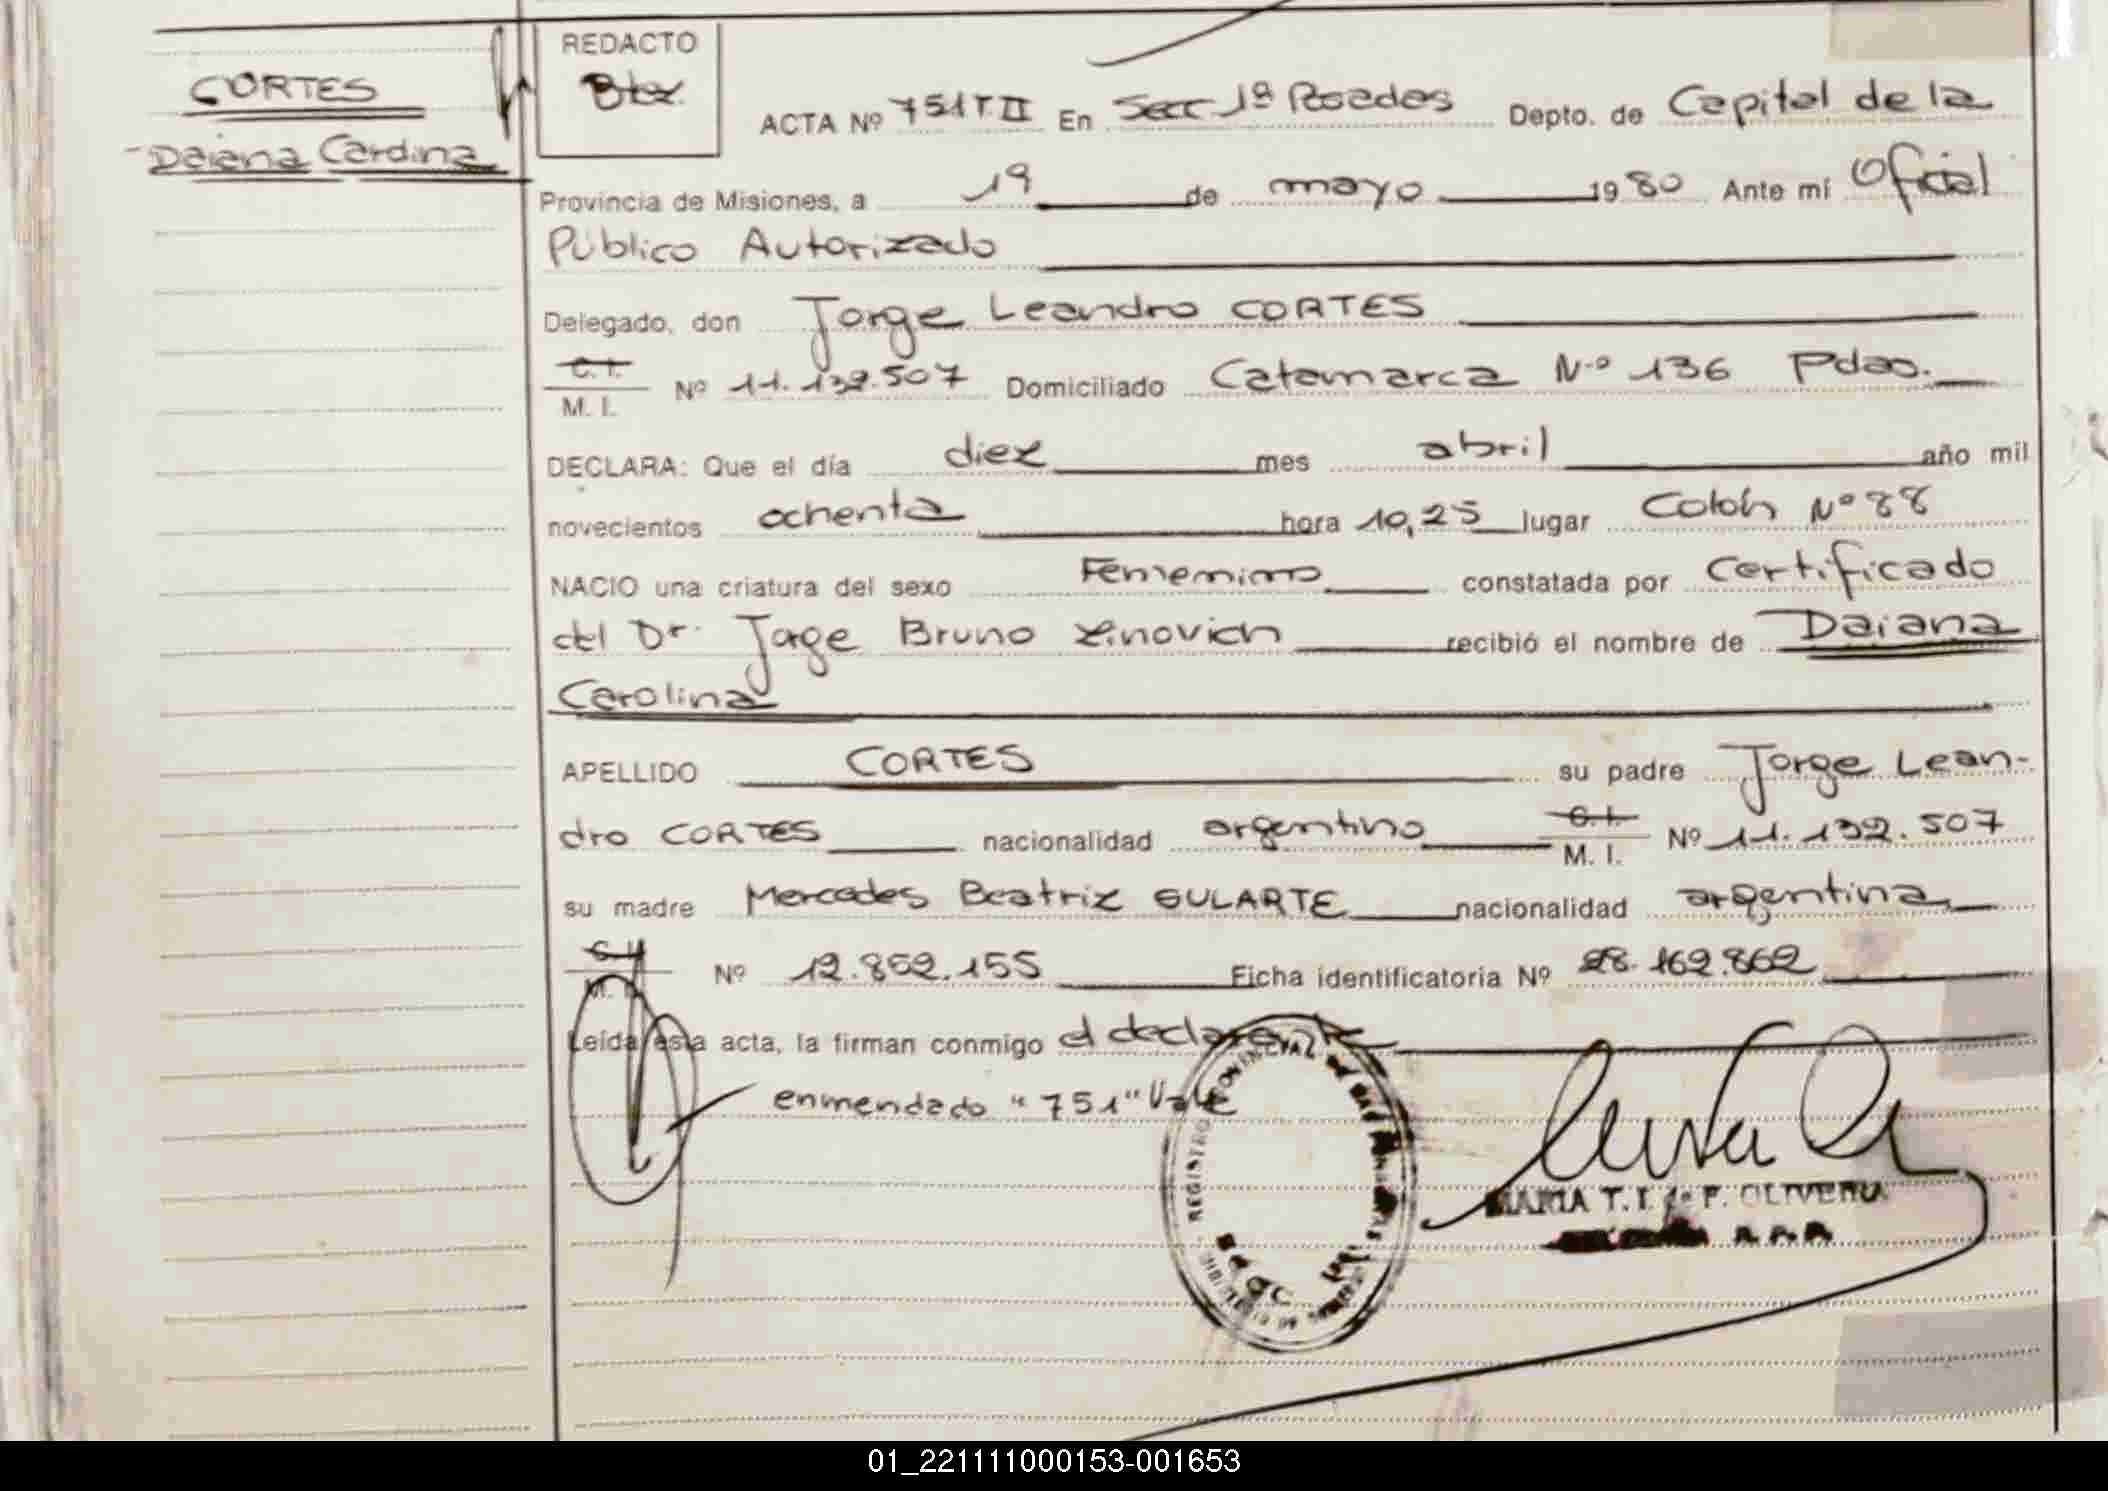 CORTES
Daiana Carolina
REDACTO
ACTA Nº 751 T. II En Secc 1º Posadas Depto. de Capital de la
Provincia de Misiones, a 19 de mayo 1980 Ante mí Oficial
Público Autorizado
Delegado, don Jorge Leandro CORTES
C. I.
M. I.
Nº 11.132.507 Domiciliado Catamarca Nº 136 Pdas.
DECLARA: Que el día diez mes abril año mil
novecientos ochenta hora 10,25 lugar Colón Nº 88
NACIO una criatura del sexo Femenino constatada por Certificado
del Dr. Jorge Bruno Zinovich recibió el nombre de Daiana
Carolina
APELLIDO CORTES su padre Jorge Lean-
dro CORTES nacionalidad argentino C. I. M. I. Nº 11.132.507
su madre Mercedes Beatriz GULARTE nacionalidad argentina
Nº 12.852.155 Ficha identificatoria Nº 28.162.862
Leída esta acta, la firman conmigo el declarante
enmendado "751" Vale
REGISTRO PROVINCIAL DE LAS PERSONAS
MARIA T. F. OLIVERA
01_221111000153-001653